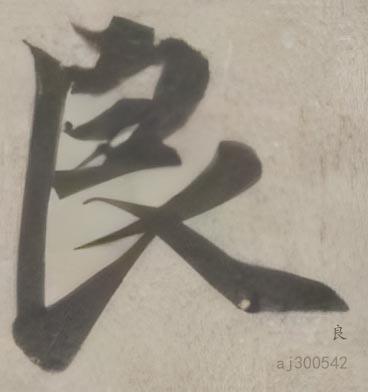 良
良
aj300542